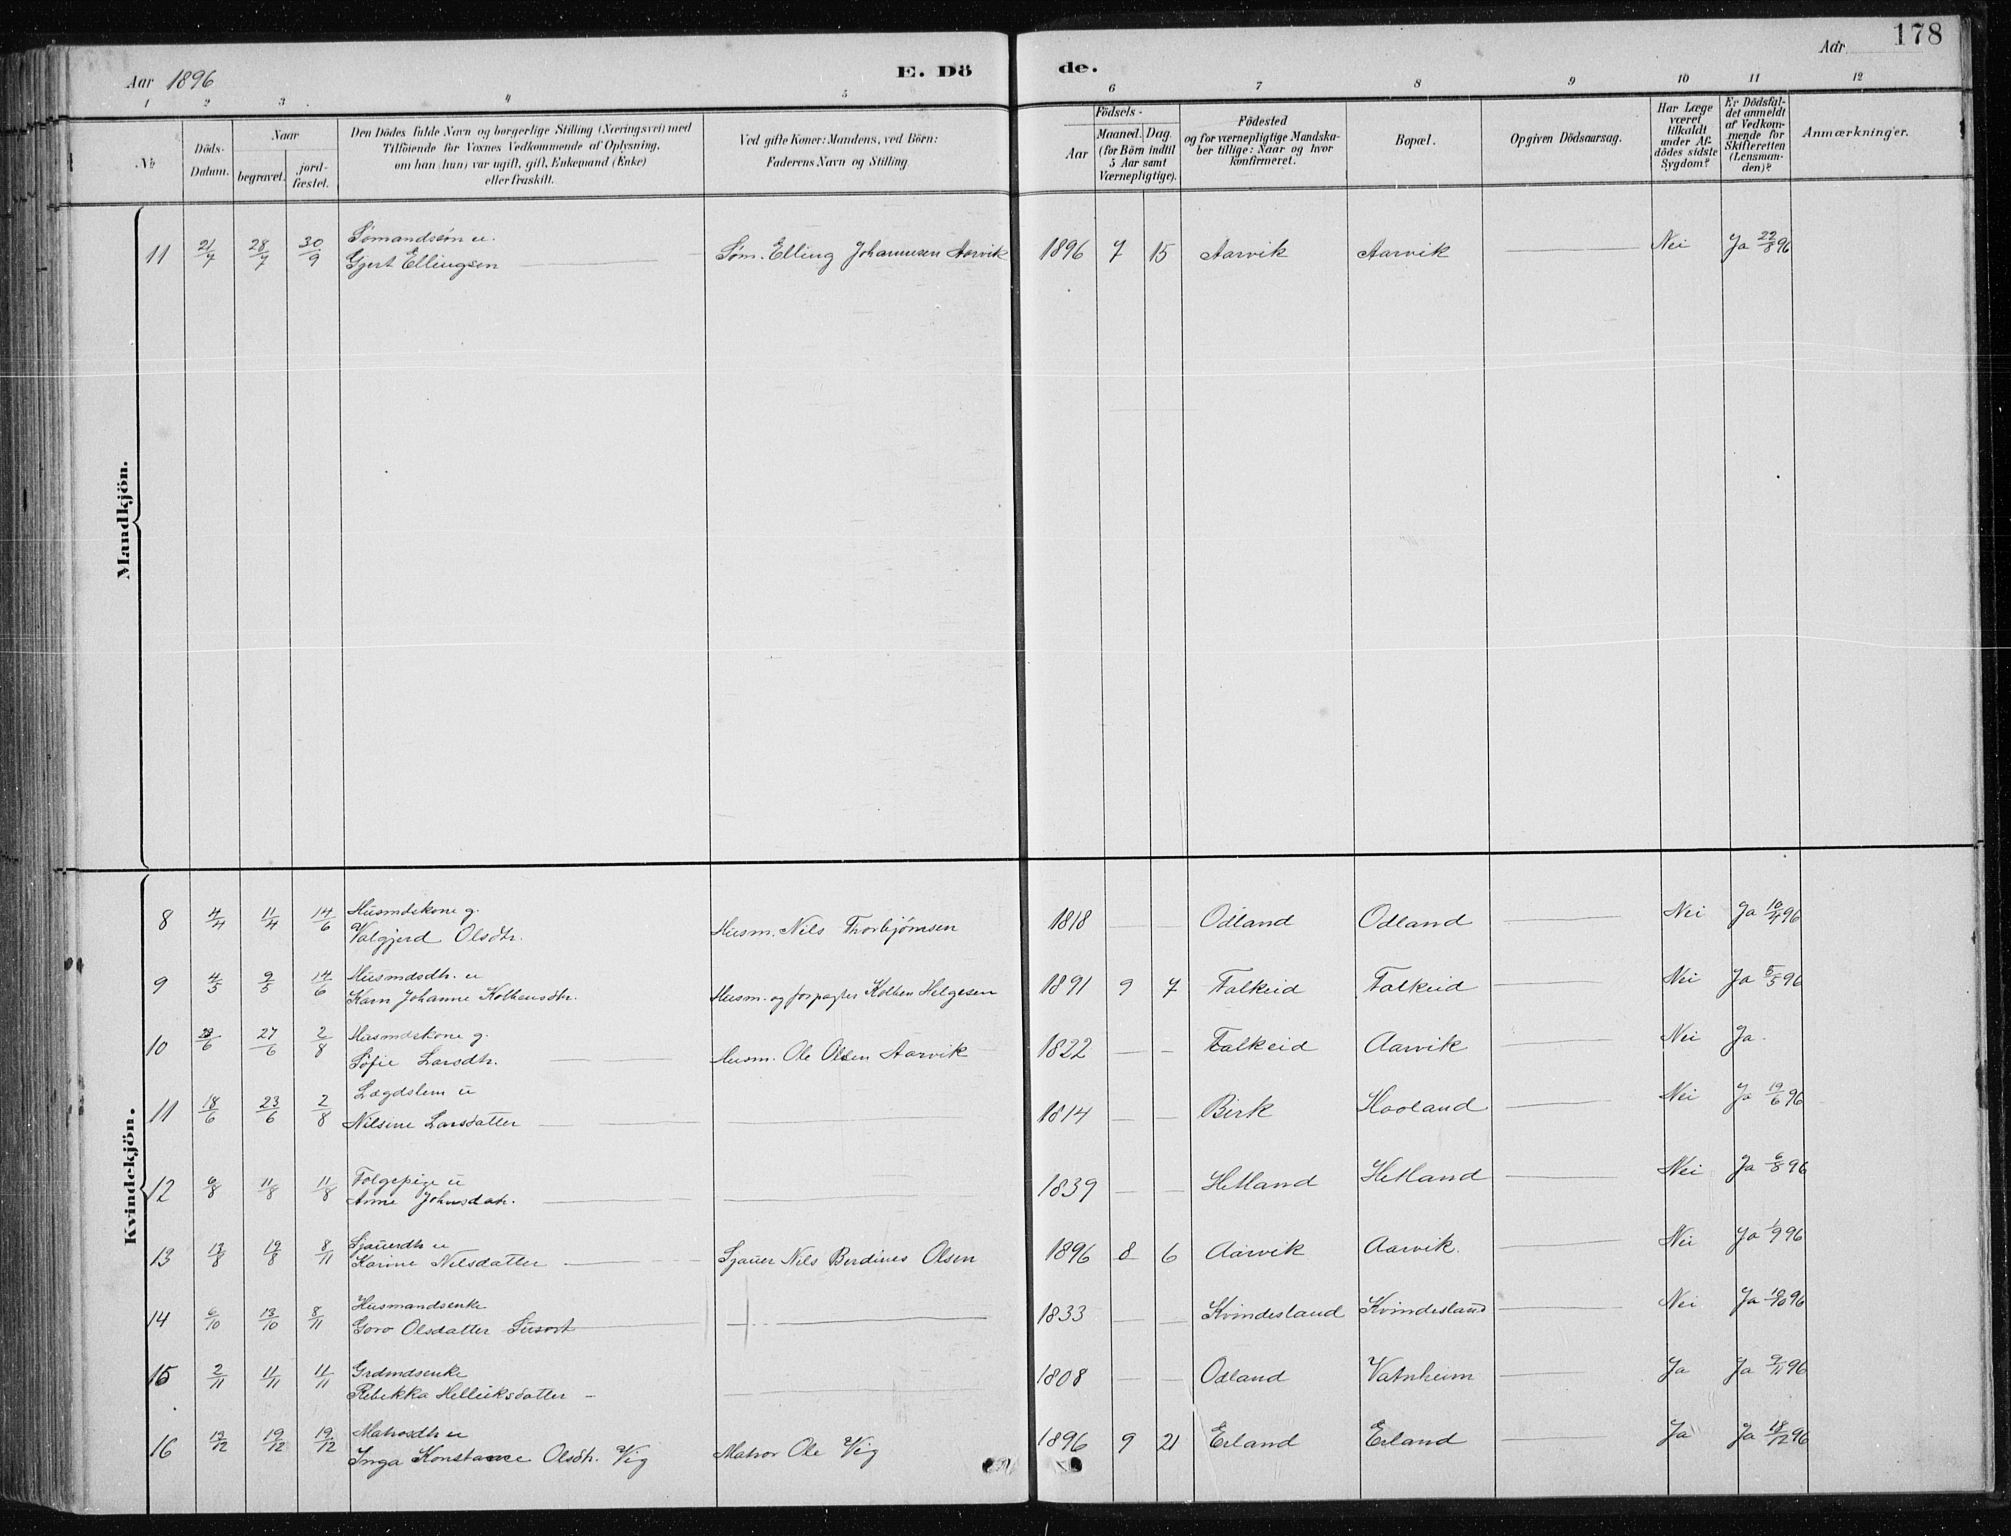 178
Aar 1896
E. Dö
de.
Aar
1 2 3 4 5 6 7 8 9 10 11 12
№
Döds-
Datum.
Naar
begravet.
jord-
fæstet.
Den Dödes fulde Navn og borgerlige Stilling (Næringsvei) med
Tilföiende for Voxnes Vedkommende af Oplysning,
om han (hun) var ugift, gift, Enkemand (Enke)
eller fraskilt.
Ved gifte Koner: Mandens, ved Börn:
Faderens Navn og Stilling
Födsels-
Aar
Maaned. Dag.
(for Börn indtil
5 Aar samt
Værnepligtige).
Födested
og for værnepligtige Mandska-
ber tillige: Naar og hvor
konfirmeret.
Bopæl.
Opgiven Dödsaarsag.
Har Læge
været
tilkaldt
under Af-
dödes sidste
Sygdom?
Er Dödsfal-
det anmeldt
af Vedkom-
mende for
Skifteretten
(Lensman-
den)?
Anmærkninger.
Mandkjön.
11 21/7 28/7 30/9 Sömandssön u.
Gjert Ellingsen Söm. Elling Johannesen Aarvik 1896 7 15 Aarvik Aarvik Nei Ja 22/8 96
Kvindekjön.
8 4/4 11/4 14/6 Husmdskone g.
Valgjerd Olsdtr. Husm. Nils Thorbjörnsen 1818 Odland Odland Nei Ja 10/4 96
9 4/5 9/5 14/6 Husmdsdtr. u
Karn Johanne Kolbensdtr. Husm. og forpagter Kolben Helgesen 1891 9 7 Falkeid Falkeid Nei Ja 5/5 96
10 23/6 27/6 2/8 Husmdskone g.
Sofie Larsdtr. Husm. Ole Olsen Aarvik 1822 Falkeid Aarvik Nei Ja.
11 18/6 23/6 2/8 Lægdslem u
Nilsine Larsdatter 1814 Birk Haaland Nei Ja 19/6 96
12 6/8 11/8 11/8 Folgepige u
Anne Johnsdatr. 1839 Hetland Hetland Nei Ja 6/8 96
13 13/8 19/8 8/11 Sjauerdtr u
Karine Nilsdatter Sjauer Nils Berdines Olsen 1896 8 6 Aarvik Aarvik. Nei Ja 1/9 96
14 6/10 13/10 8/11 Husmandsenke
Goro Olsdatter 1833 Kvindesland Kvindesland Nei Ja 10/10 96
15 2/11 11/11 11/11 Grdmdsenke
Rebekka Helleiksdatter 1808 Odland Vatnheim Ja Ja 9/11 96
16 13/12 19/12 19/12 Matrosdtr u
Inga Konstanse Olsdtr. Vig Matros Ole Vig 1896 9 21 Erland Erland Ja Ja 18/12 96